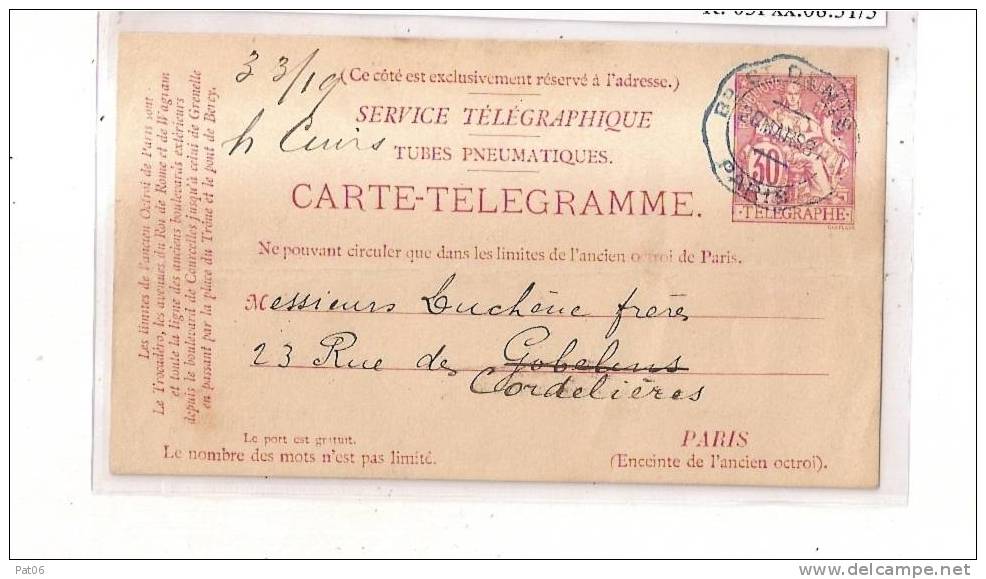 33/19
(Ce côté est exclusivement réservé à l'adresse.)
SERVICE TÉLÉGRAPHIQUE
h Cuirs
TUBES PNEUMATIQUES.
CARTE-TÉLÉGRAMME.
Ne pouvant circuler que dans les limites de l'ancien octroi de Paris.
Messieurs Duchêne frères
23 Rue des Gobelins
Cordelières
Le port est gratuit.
Le nombre des mots n'est pas limité.
PARIS
(Enceinte de l'ancien octroi).
Les limites de l'ancien Octroi de Paris sont :
Le Trocadéro, les avenues du Roi de Rome et de Wagram
et toute la ligne des anciens boulevards extérieurs
depuis le boulevard de Courcelles jusqu'à celui de Grenelle
en passant par la place du Trône et le pont de Bercy.
PARIS
30
TELEGRAPHE
Pat06
delcampe.net